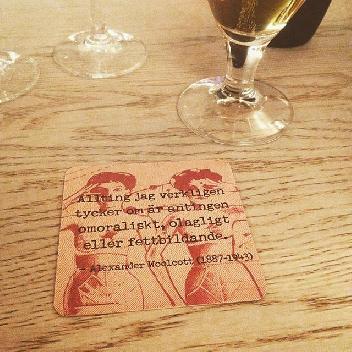 Allting jag verkligen
tycker om är antingen
omoraliskt, olagligt
eller fettbildande.
- Alexander Woolcott (1887-1943)